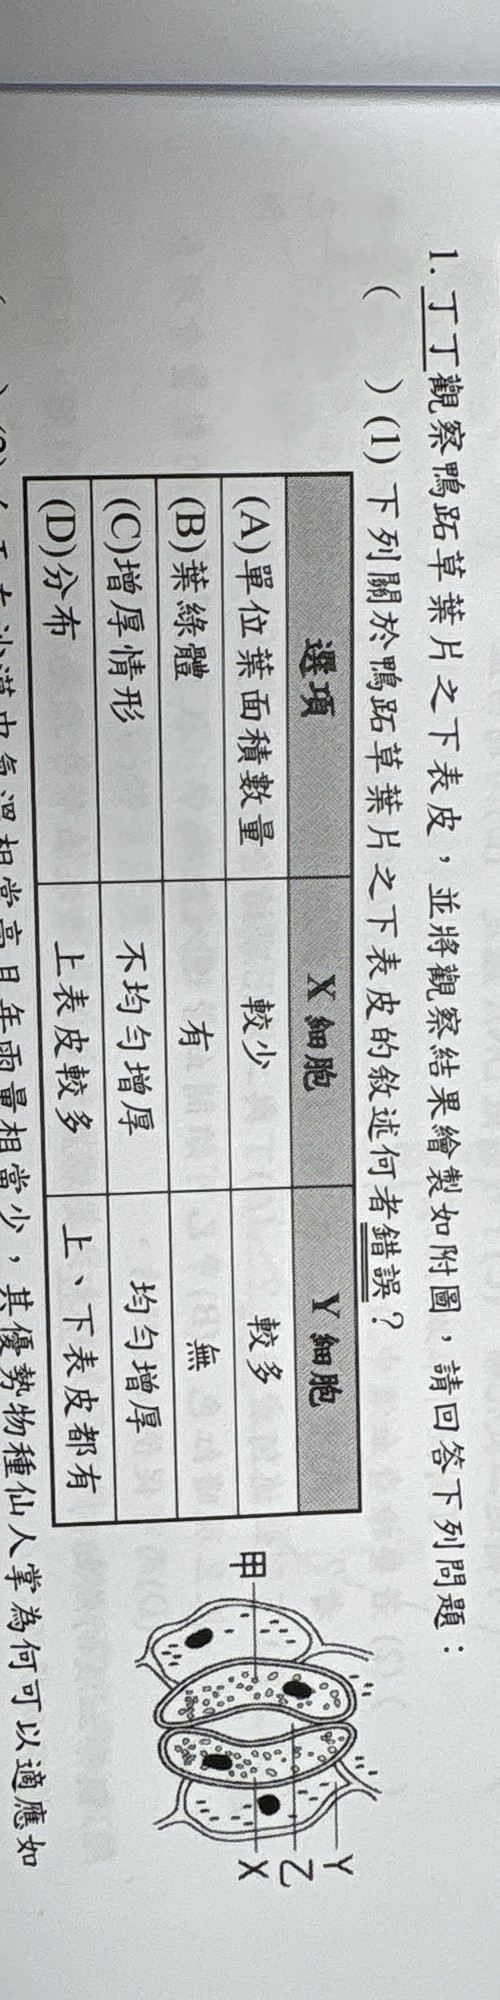 1. 丁丁觀察鴨跖草葉片之下表皮，並將觀察結果繪製如附圖，請回答下列問題：
(　　)(1)下列關於鴨跖草葉片之下表皮的敘述何者錯誤？
選項 X細胞 Y細胞
(A)單位葉面積數量 較少 較多
(B)葉綠體 有 無
(C)增厚情形 不均勻增厚 均勻增厚
(D)分布 上表皮較多 上、下表皮都有
甲
Y
乙
X
沙漠中氣溫相當高且年雨量相當少，其優勢物種仙人掌為何可以適應如